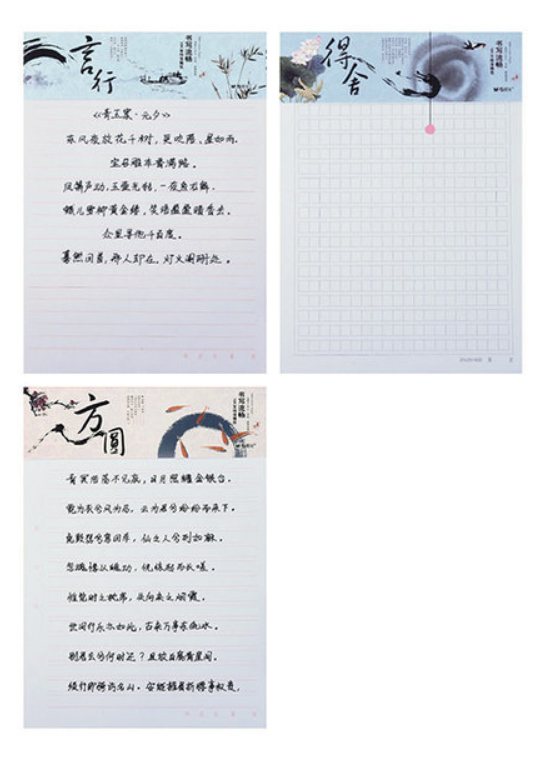 言行
书写流畅
《青玉案·元夕》
东风夜放花千树，更吹落、星如雨。
宝马雕车香满路。
凤箫声动，玉壶光转，一夜鱼龙舞。
蛾儿雪柳黄金缕，笑语盈盈暗香去。
众里寻他千百度。
蓦然回首，那人却在，灯火阑珊处。
得舍
书写流畅
方圆
书写流畅
青冥浩荡不见底，日月照耀金银台。
霓为衣兮风为马，云为君兮纷纷而来下。
虎鼓瑟兮鸾回车，仙之人兮列如麻。
忽魂悸以魄动，恍惊起而长嗟。
惟觉时之枕席，失向来之烟霞。
世间行乐亦如此，古来万事东流水。
别君去兮何时还？且放白鹿青崖间。
须行即骑访名山。安能摧眉折腰事权贵，